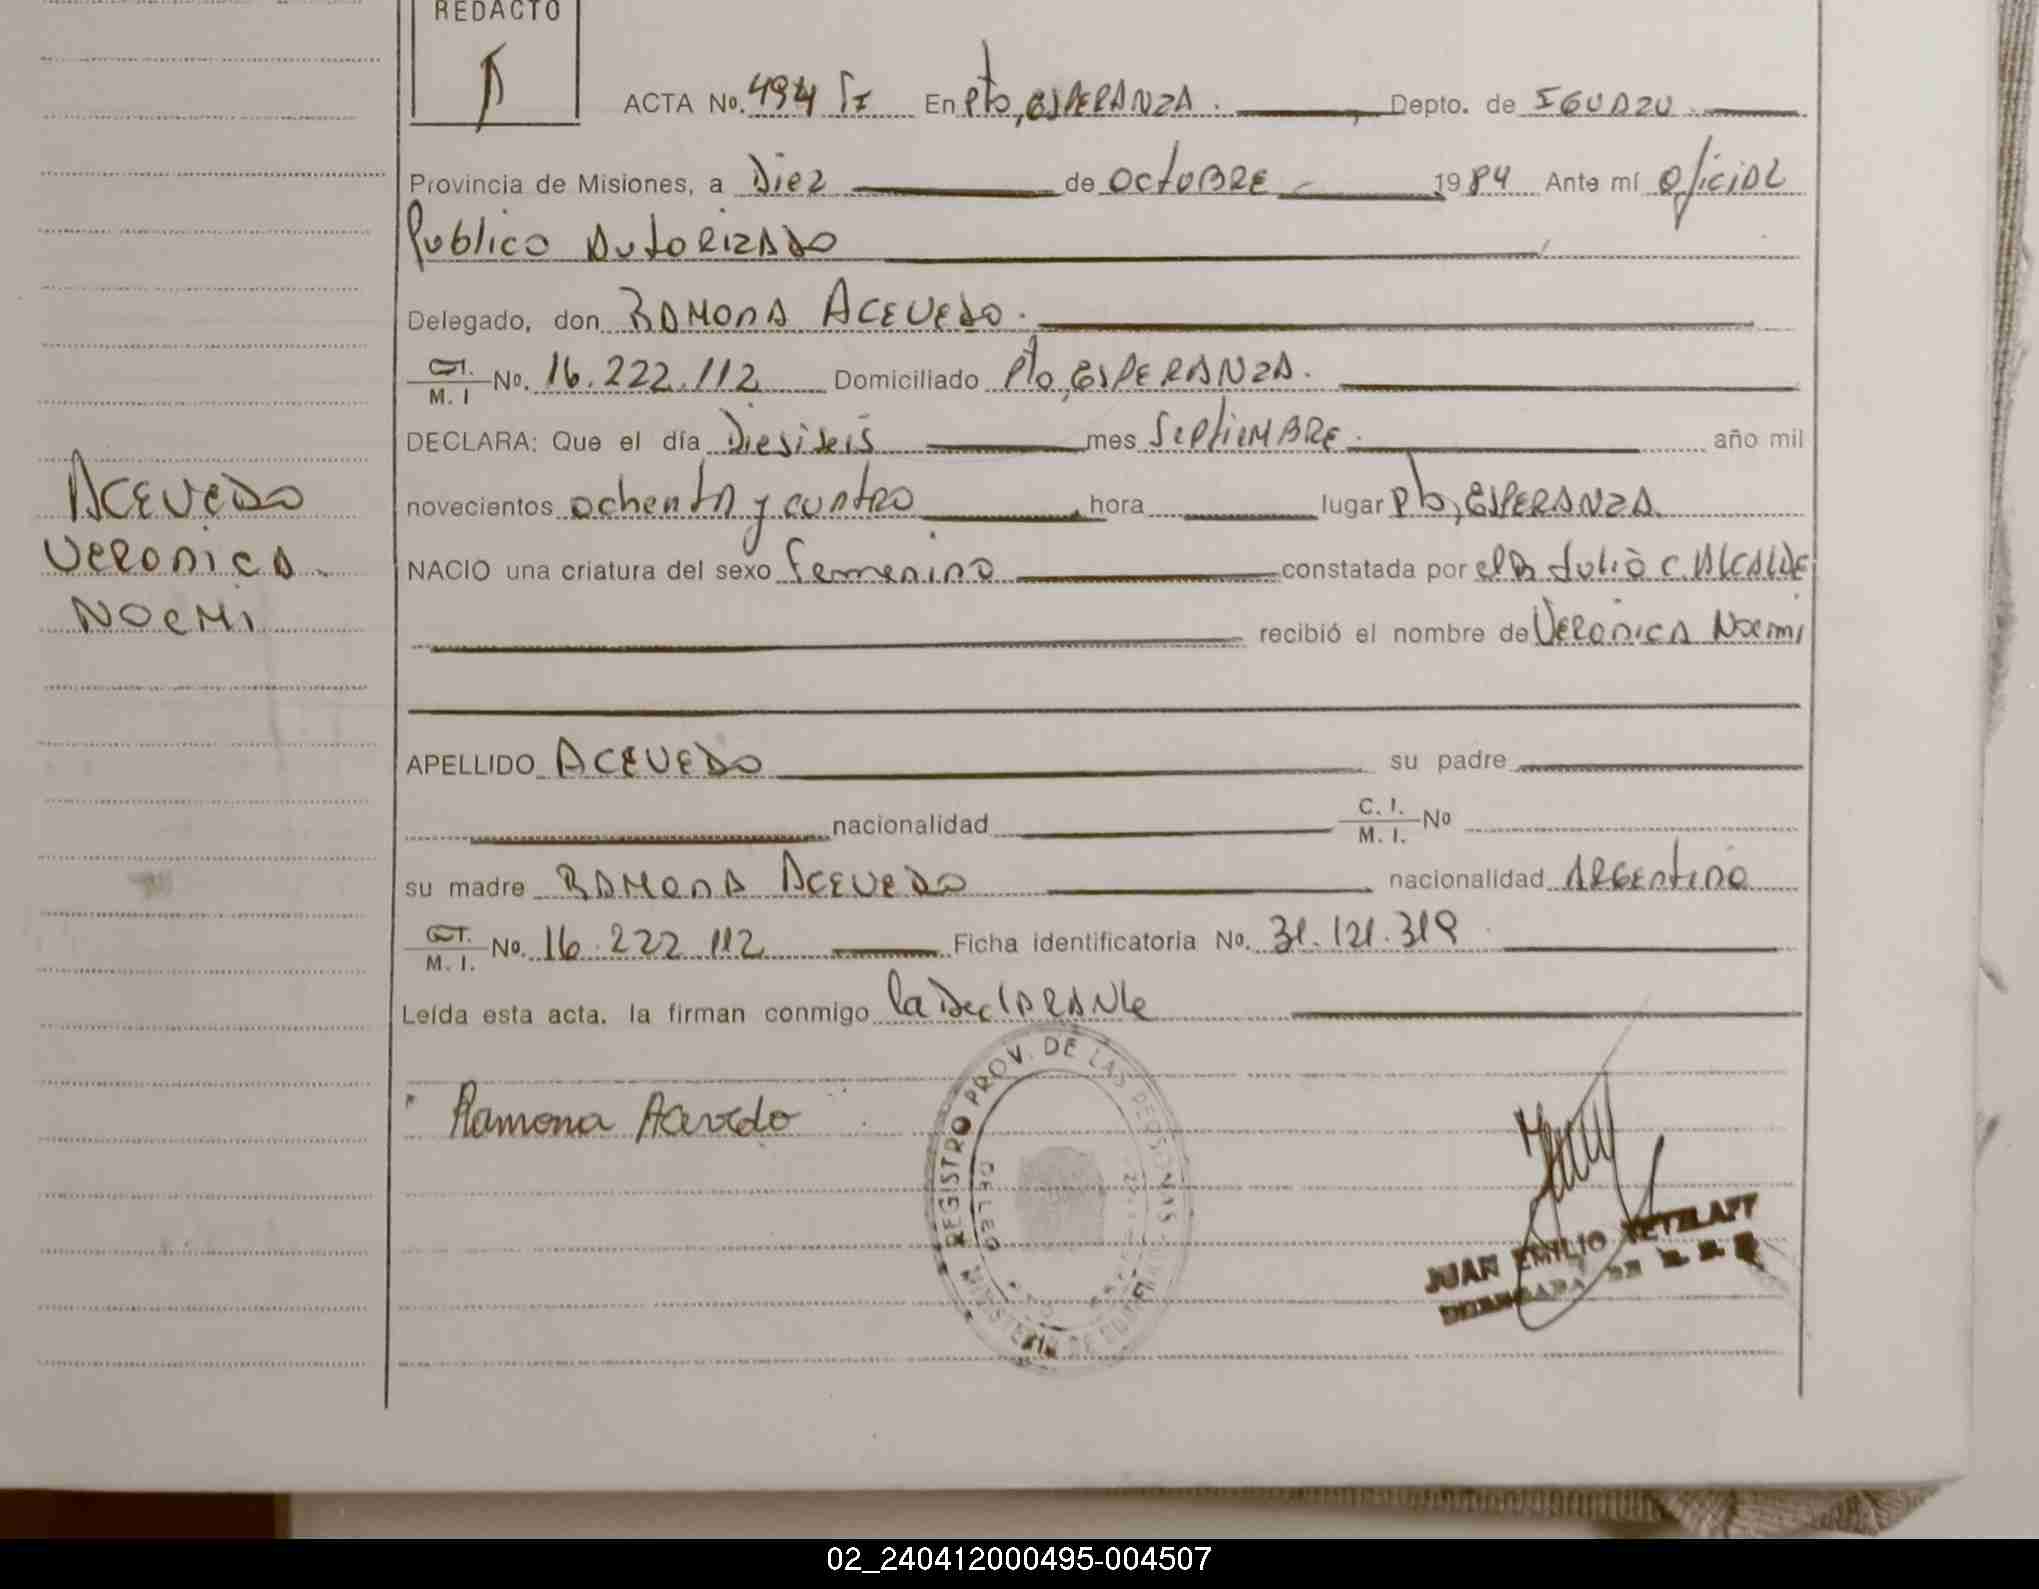 REDACTO
ACTA No. 494 En Pto, ESPERANZA. Depto. de IGUAZU
Provincia de Misiones, a Diez de OCTUBRE 1984 Ante mí Oficial
Publico Autorizado
Delegado, don RAMONA ACEVEDO.
M. I No. 16.222.112 Domiciliado Pto, ESPERANZA.
DECLARA: Que el día Diesiseis mes Septiembre. año mil
novecientos ochenta y cuatro hora lugar Pto, ESPERANZA.
NACIO una criatura del sexo femenino constatada por el Dr Julio C. ALCALDE
recibió el nombre de Veronica Noemi
ACEVEDO
VERONICA.
NOEMI
APELLIDO ACEVEDO su padre
nacionalidad C. I. M. I. No
su madre RAMONA ACEVEDO nacionalidad ARGENTINO
M. I. No. 16.222.112 Ficha identificatoria No. 31.121.319
Leída esta acta. la firman conmigo la Declarante
Ramona Acevedo
REGISTRO PROV. DE LAS PERSONAS
MINISTERIO DE
JUAN EMILIO
02_240412000495-004507